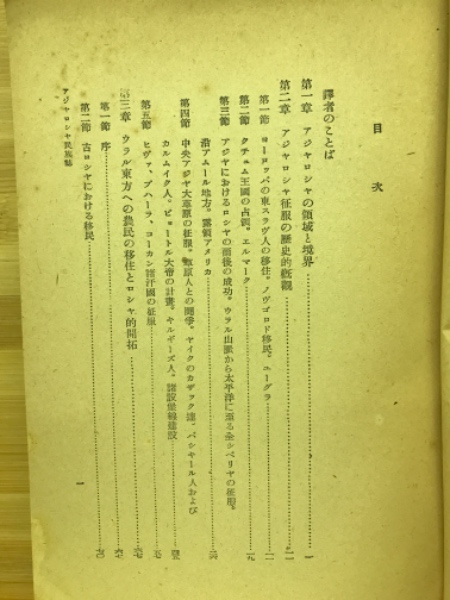 目次
譯者のことば
第一章 アジャロシヤの領域と境界……一
第二章 アジャロシヤ征服の歷史的槪觀……一一
第一節 ヨーロッパの東スラヴ人の移住。ノヴゴロド移民。ユーグラ……一一
第二節 クチュム王國の占領。エルマーク……一九
第三節 アジヤにおけるロシヤの爾後の成功。ウラル山脈から太平洋に至る全シベリヤの征服。
沿アムール地方。露領アメリカ
第四節 中央アジヤ大草原の征服。草原人との鬪爭。ヤイクのカザック達。バシキール人および
カルムイク人。ピョートル大帝の計畫。キルギーズ人。諸設堡線建設
第五節 ヒヴァ、ブハーラ、コーカン諸汗國の征服
第三章 ウラル東方への農民の移住とロシヤ的開拓
第一節 序
第二節 古ロシヤにおける移民
アジヤロシヤ民族誌
一